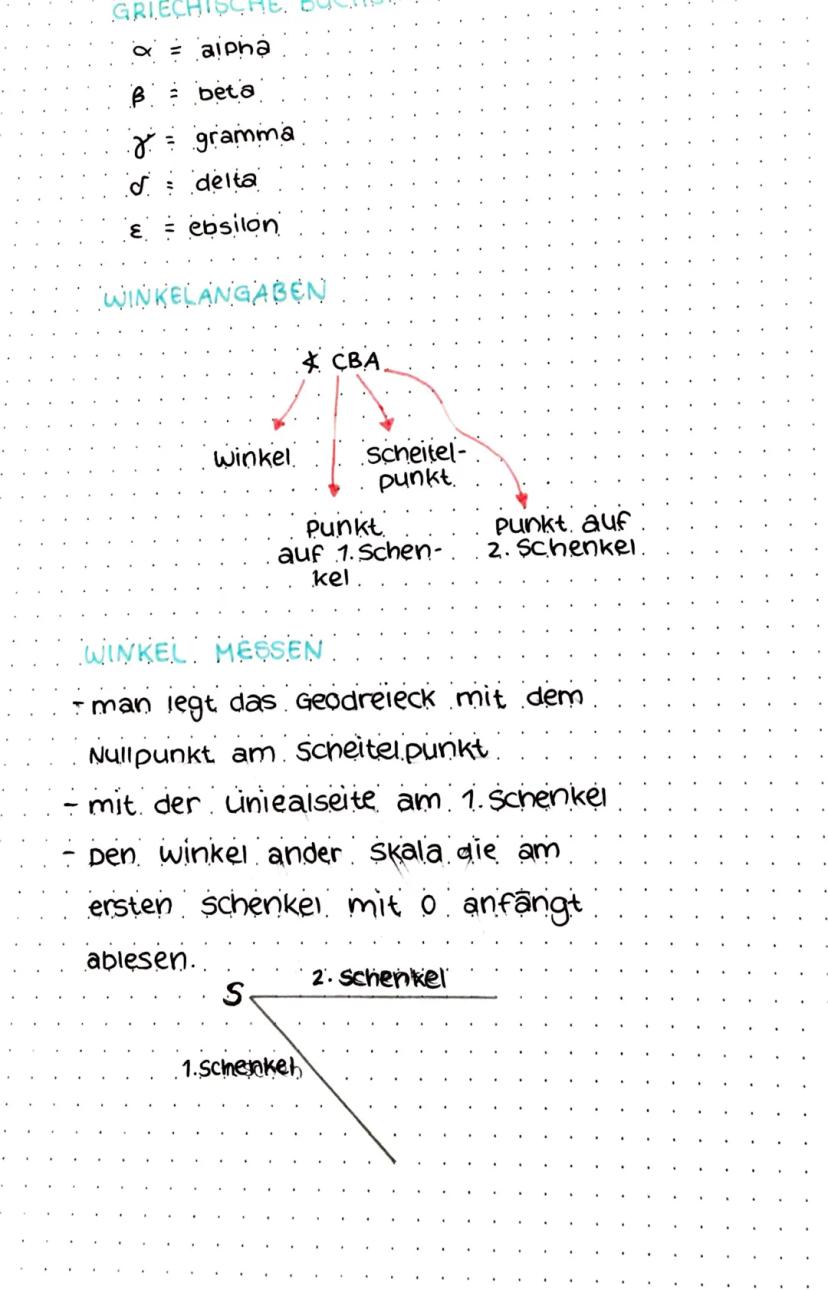 GRIECHISCHE
α = alpha
β = beta
γ = gramma
δ = delta
ε = ebsilon
WINKELANGABEN
∡ CBA
Winkel
Scheitel-
punkt
Punkt
auf 1. Schen-
kel
Punkt auf
2. Schenkel
WINKEL MESSEN
- man legt das Geodreieck mit dem
Nullpunkt am Scheitelpunkt
- mit der Liniealseite am 1. Schenkel
- Den Winkel ander Skala die am
ersten Schenkel mit 0 anfängt
ablesen.
S
2. Schenkel
1. Schenkel